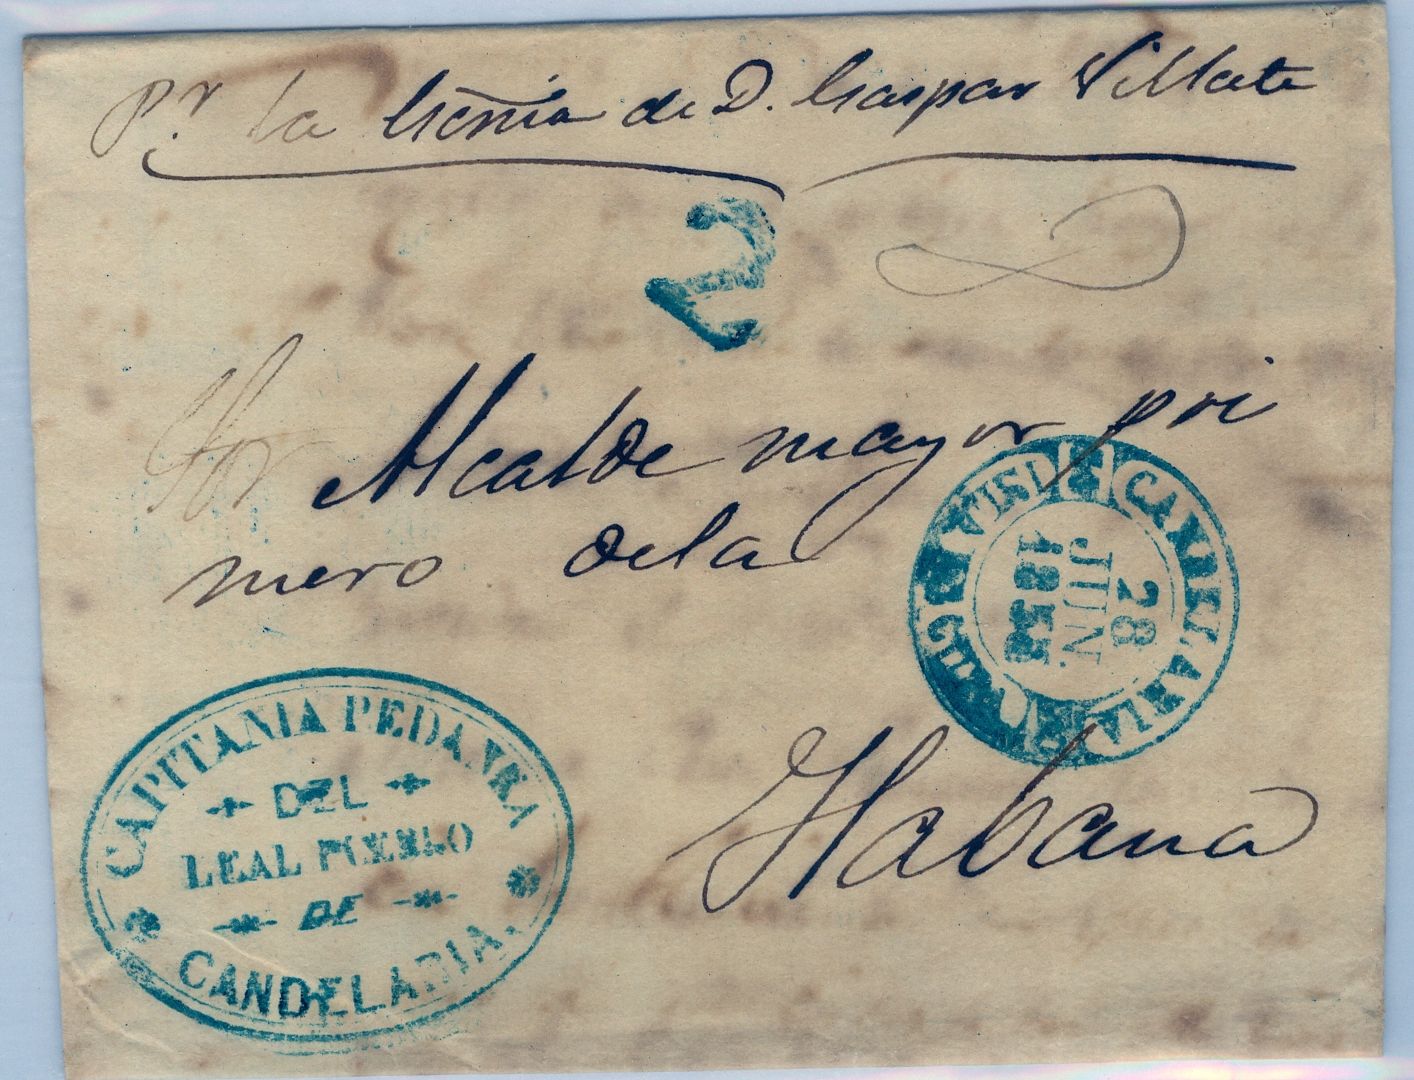 Pr. la Escña de D. Gaspar Villate
2
Sor Alcalde mayor pri
mero dela
Habana
CANDELARIA
ISLA D
28
JUN.
1854
CAPITANIA PEDANEA
DEL
LEAL PUEBLO
DE
CANDELARIA.